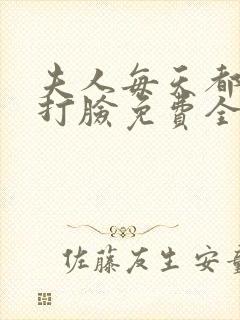 夫人每天都
打臉免費全
佐藤友生 安童